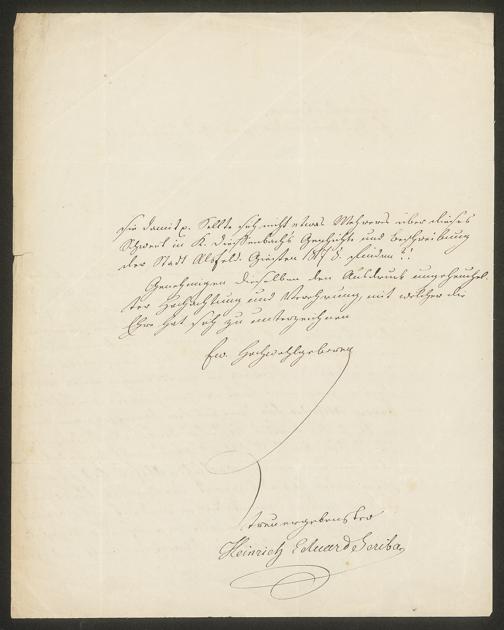 sie damit p. Sollte sich nicht etwas Mehreres über dieses
Schwert in K. Dieffenbach's Geschichte und Beschreibung
der Stadt Alsfeld. Giessen 1817 8. finden?!
Genehmigen dieselben den Ausdruck ungeheuchel-
ter Hochachtung und Verehrung, mit welcher die
Ehre hat sich zu unterzeichnen
Ew. Hochwohlgeboren
treuergebenster
Heinrich Eduard Scriba